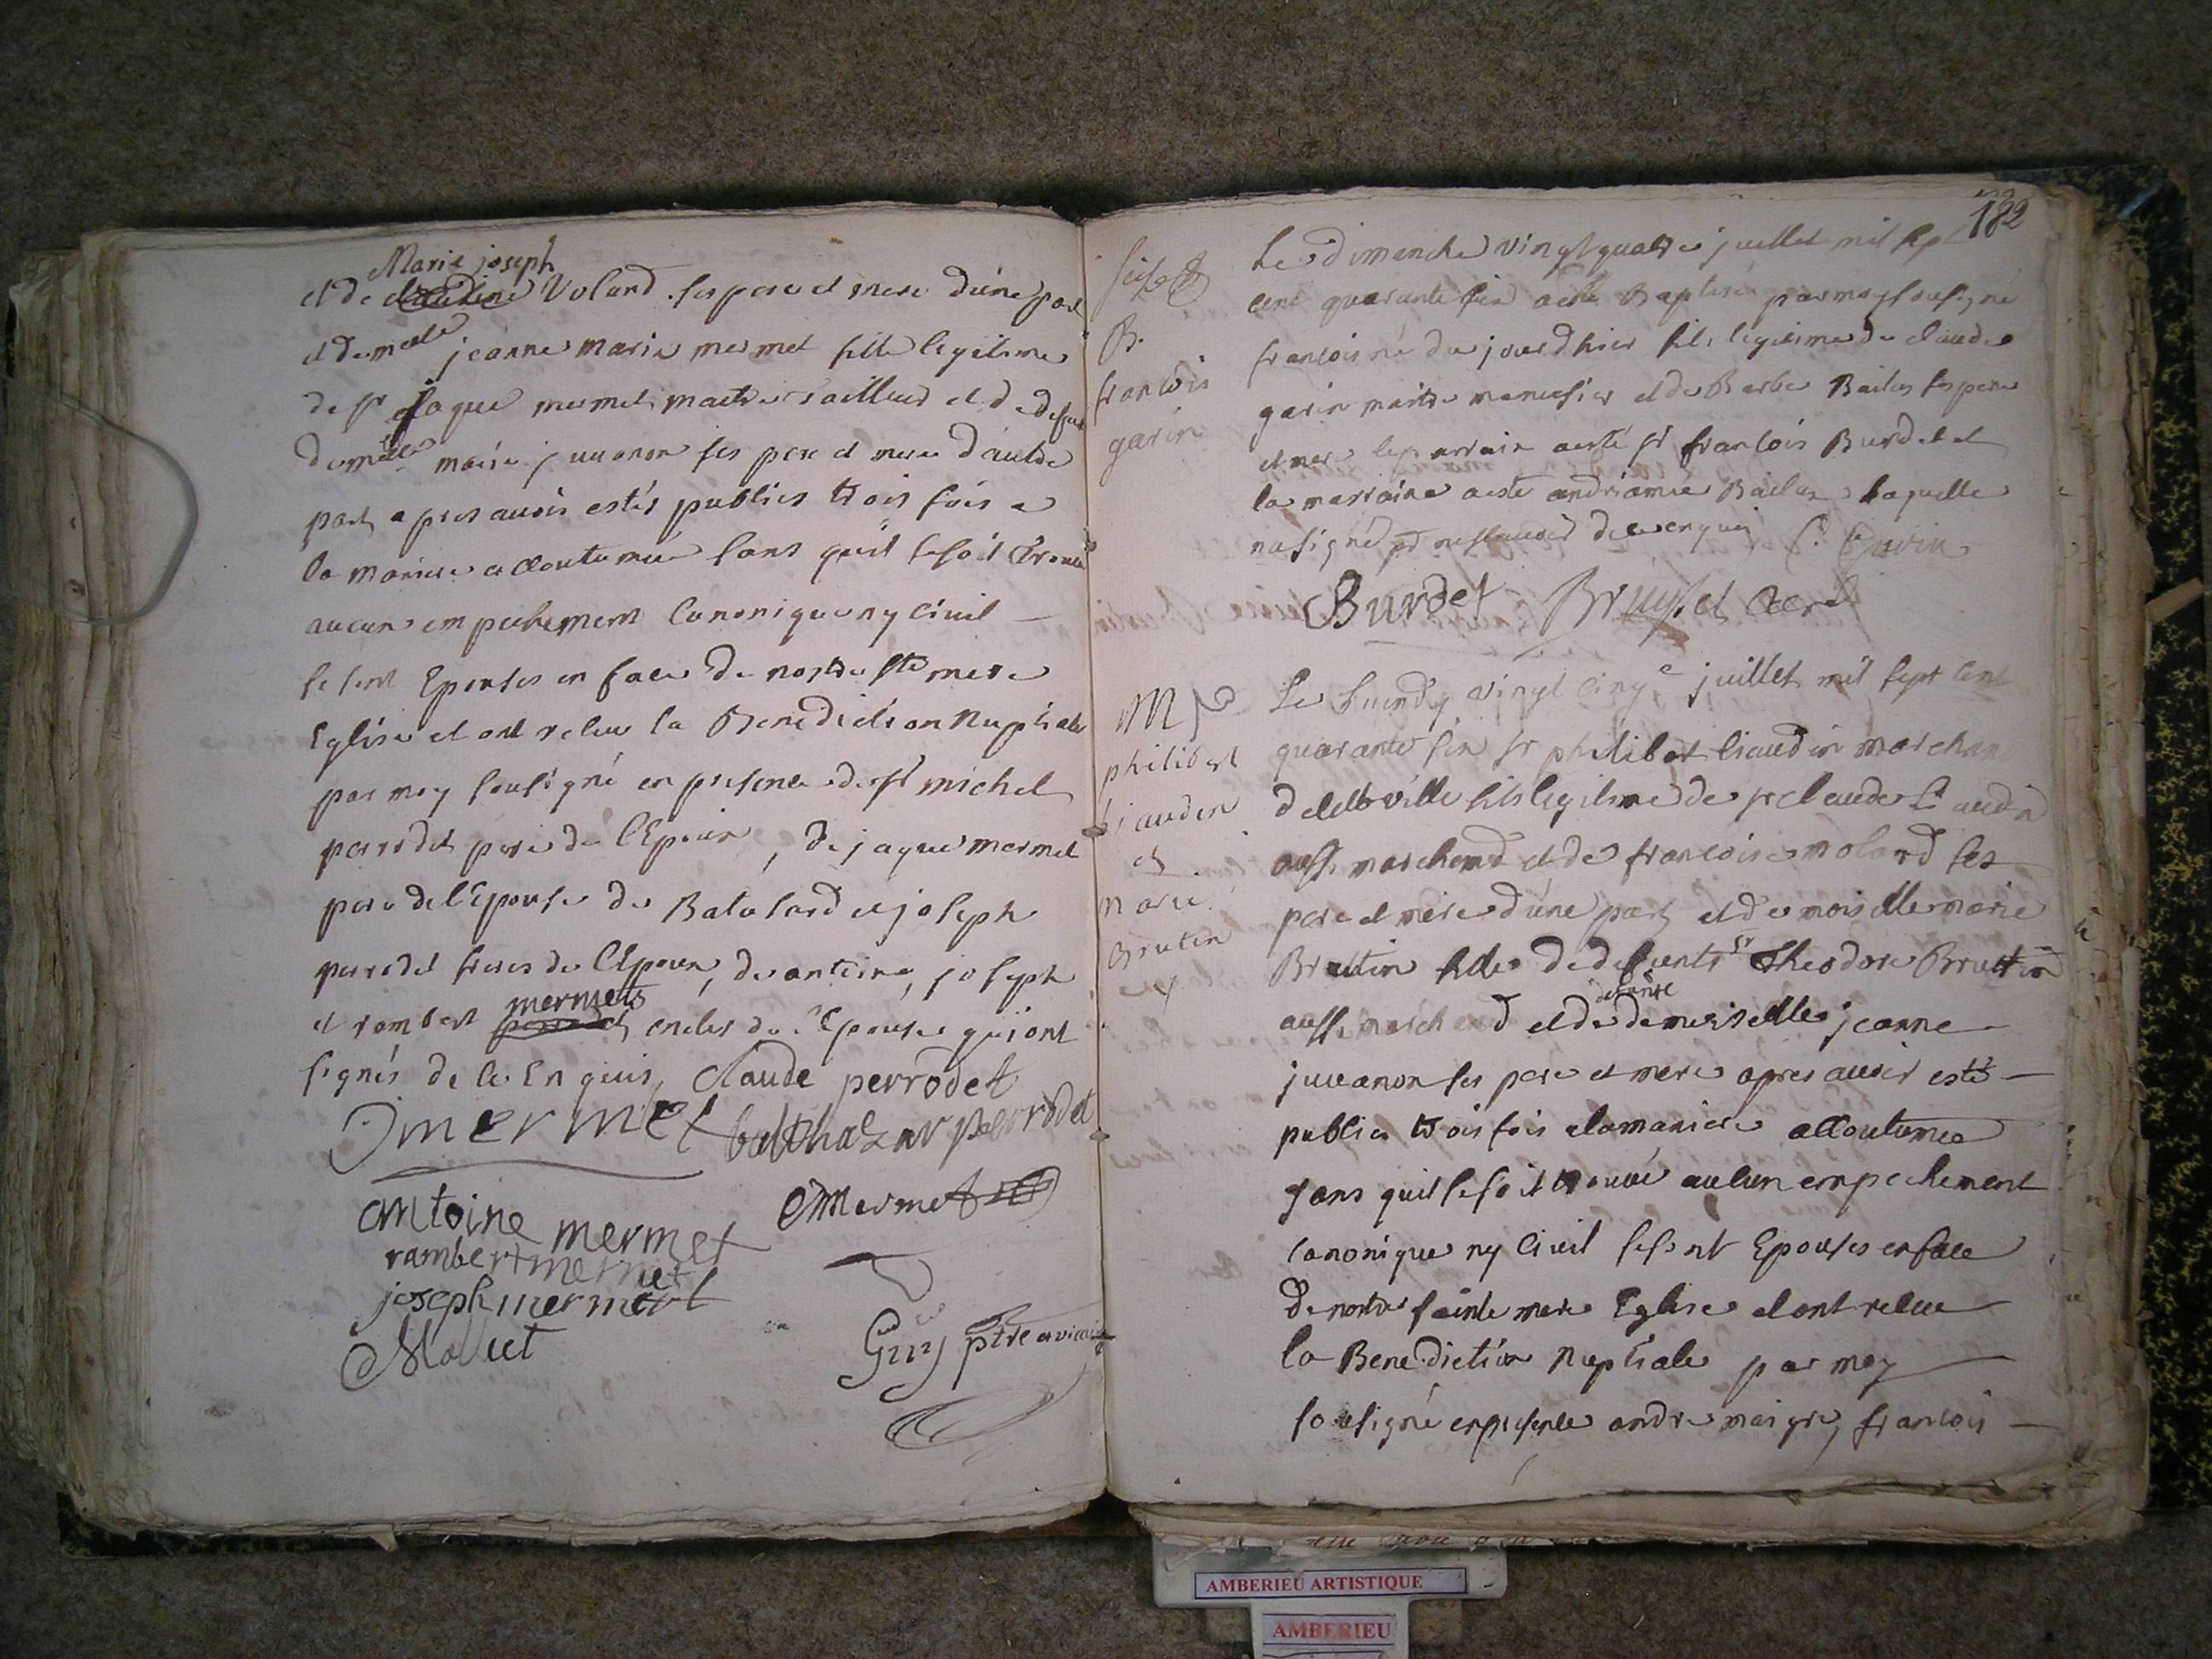 Marie joseph
et de claudine Voland ses pere et mere d'une part
et de melle jeanne marie mermet fille legitime
de sr jaque mermet maitre tailleur et de defunte
demelle marie juuanon ses pere et mere d'autre
part apres auoir estés publies trois fois a
la maniere accoutumée sans qu'il se soit trouué
aucun empechement Canonique ny Ciuil
se sont Epousés en face de nostre ste mere
Eglise et ont receu la Benediction Nuptiale
par moy sousigné en presence de sr michel
perrodet pere de l'Epoux, de jaque mermet
pere de l'Epouse de Batasard et joseph
perrodet freres de l'Epoux, de antoine, joseph
mermets
et rambert perrodet oncles de l'Epouse qui ont
signés de ce Enquis, Claude perrodet
J mermet balthazar perrodet
antoine mermet C Mermet
rambert mermet
joseph mermet
Mollict
Guy ptre et vicaire
182
B.
francois
garin
Le dimanche vingt quatre juillet mil sept
cent quarante six a esté Baptisé par moy sousigné
francois né du jourdhier fils legitime de claude
garin maitre menuisier et de Barbe Bailus ses pere
et mere le parrain a esté sr francois Burdet et
la marraine a esté andréamée Bailus laquelle
na signé pr ne scauoir de ce enquis C. Garin
Burdet Bruyset Curé
M
philibert
liaudin
et
marie
Brutin
Le Lundy vingt cinqe juillet mil sept cent
quarante six sr philibert liaudin marchand
de cette ville fils legitime de sr claude Liaudin
aussi marchand et de francoise molard ses
pere et mere d'une part et demoiselle marie
Bruttin fille de defunts sr Theodore Bruttin
defunte
aussi marchand et de demoiselle jeanne
juuanon ses pere et mere apres auoir esté
publies trois fois a la maniere accoutumée
sans quil se soit trouué aucun empechement
canonique ny Ciuil se sont Epousés en face
de nostre sainte mere Eglise et ont receu
la Benediction Nuptiale par moy
sousigné en presence andré maigre, francois
AMBERIEU ARTISTIQUE
AMBERIEU